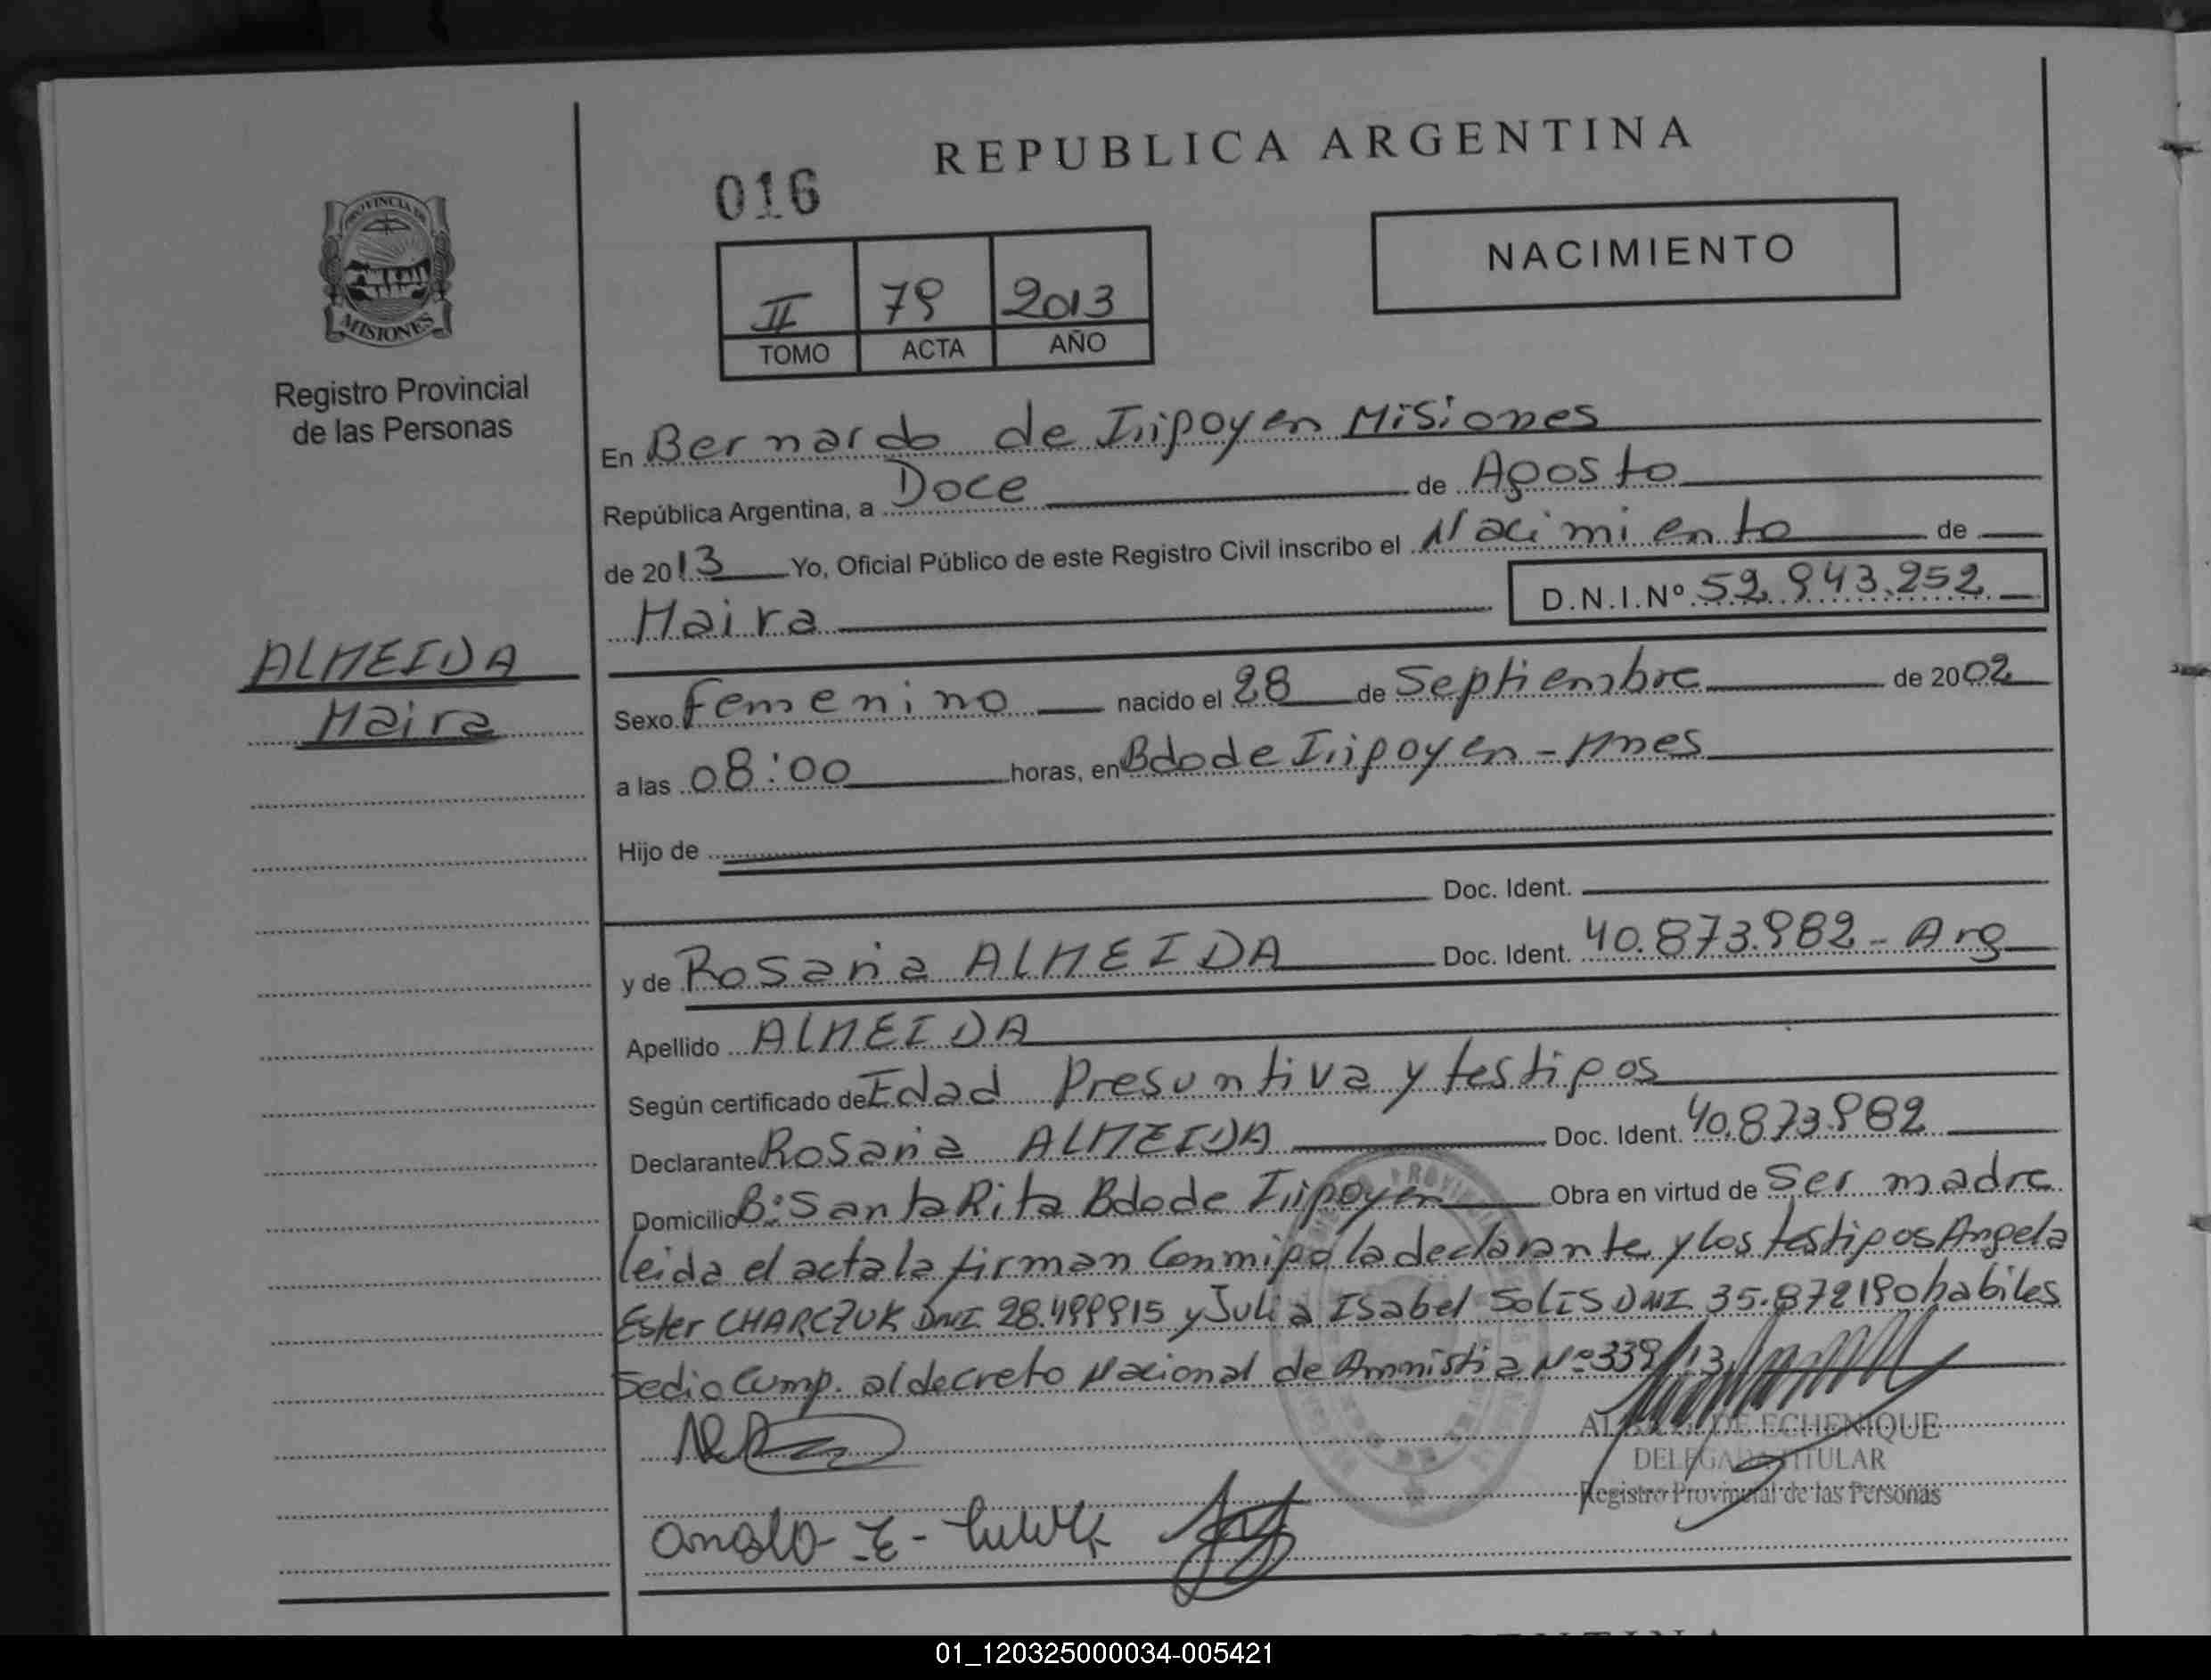 REPUBLICA ARGENTINA
016
NACIMIENTO
PROVINCIA DE
MISIONES
II 79 2013
TOMO ACTA AÑO
Registro Provincial
de las Personas
En Bernardo de Irigoyen Misiones
República Argentina, a Doce de Agosto
de 2013 Yo, Oficial Público de este Registro Civil inscribo el Nacimiento de
Maira D.N.I.Nº 52.943.252
ALMEIDA
Maira
Sexo Femenino nacido el 28 de Septiembre de 2002
a las 08:00 horas, en Bdo de Irigoyen - Mnes
Hijo de
Doc. Ident.
y de Rosaria ALMEIDA Doc. Ident. 40.873.982 - Arg
Apellido ALMEIDA
Según certificado de Edad Presuntiva y testigos
Declarante Rosaria ALMEIDA Doc. Ident. 40.873.982
Domicilio B: Santa Rita Bdo de Irigoyen Obra en virtud de Ser madre
leida el acta la firman Conmigo la declarante y los testigos Angela
Ester CHARCZUK DNI 28.499915 y Julia Isabel SOLIS DNI 35.872190 habiles
Se dio Cump. al decreto Nacional de Amnistia Nº 339/13
DE ECHENIQUE
DELEGADA TITULAR
Registro Provincial de las Personas
01_120325000034-005421